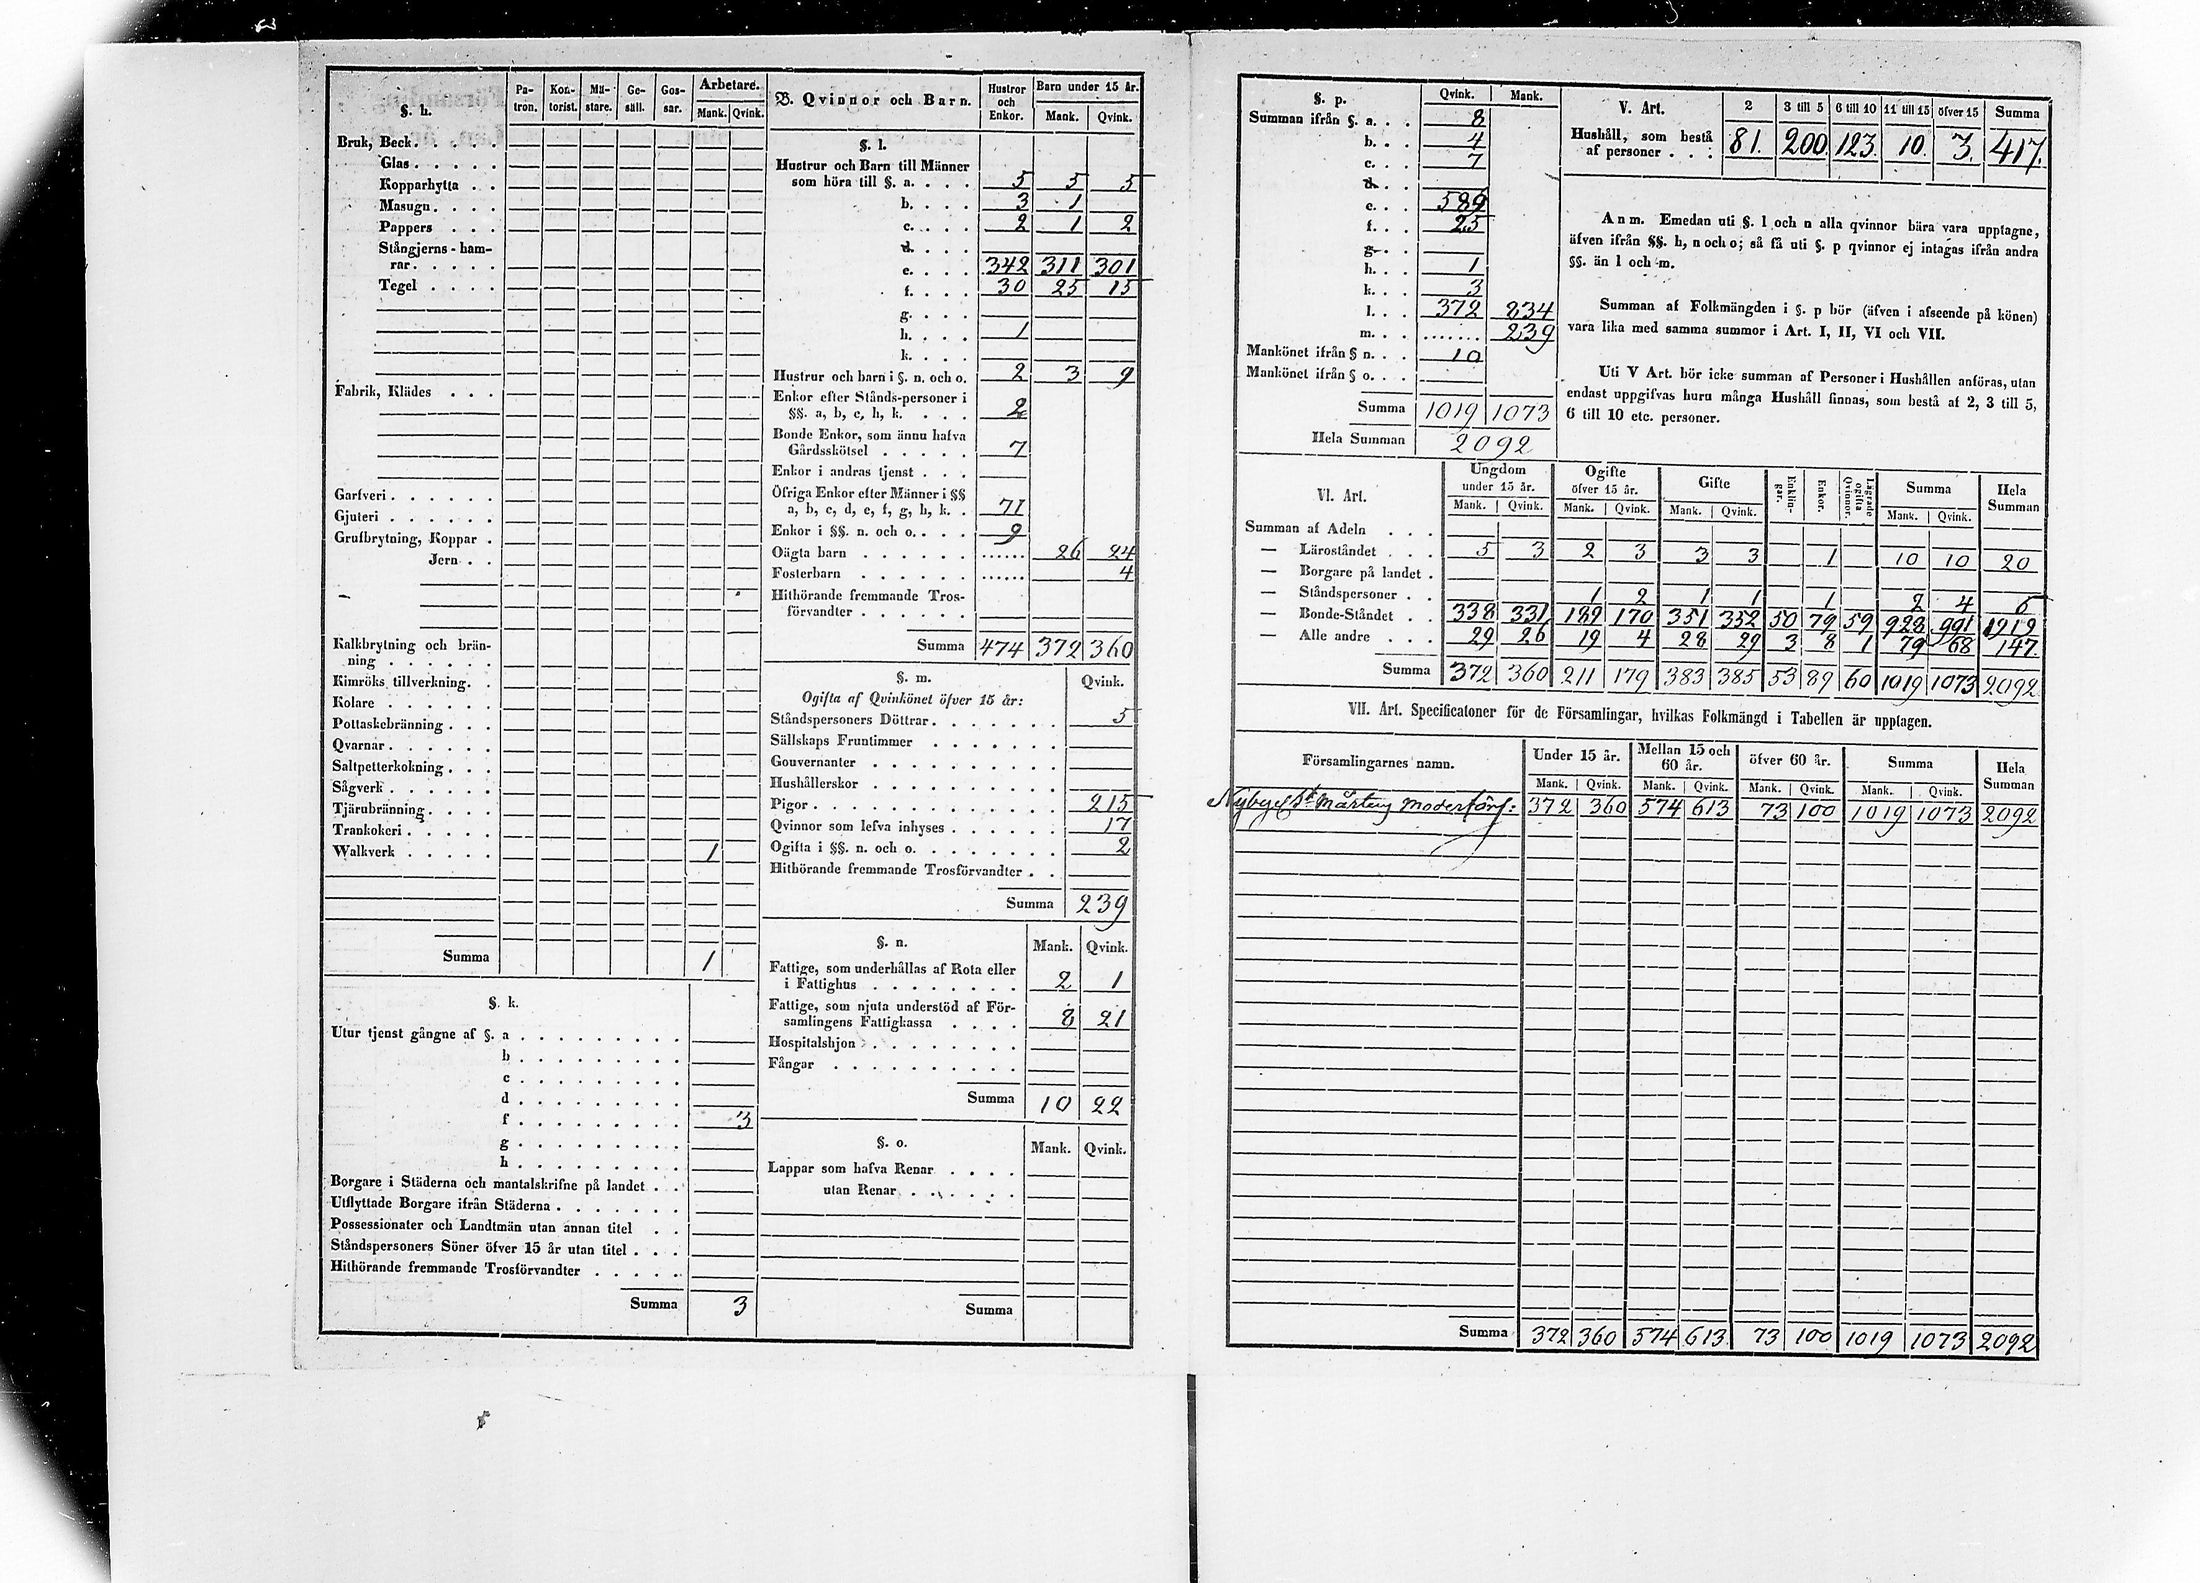 §. h. Pa- tron. Kon- torist. Mä- stare. Ge- säll. Gos- sar. Arbetare. Mank. Qvink.
Bruk, Beck
Glas
Kopparhytta
Masugn
Pappers
Stångjerns-ham-
rar
Tegel
Fabrik, Klädes
Garfveri
Gjuteri
Grufbrytning, Koppar
Jern
Kalkbrytning och brän-
ning
Kimröks tillverkning
Kolare
Pottaskebränning
Qvarnar
Saltpetterkokning
Sågverk
Tjärubränning
Trankokeri
Walkverk 1
Summa 1
§. k.
Utur tjenst gångne af §. a
b
c
d
f 3
g
h
Borgare i Städerna och mantalskrifne på landet
Utflyttade Borgare ifrån Städerna
Possessionater och Landtmän utan annan titel
Ståndspersoners Söner öfver 15 år utan titel
Hithörande fremmande Trosförvandter
Summa 3
B. Qvinnor och Barn. Hustror och Enkor. Barn under 15 år. Mank. Qvink.
§. l.
Hustrur och Barn till Männer
som höra till §. a. 5 5 5
b. 3 1
c. 2 1 2
d.
e. 342 311 301
f. 30 25 15
g.
h. 1
k.
Hustrur och barn i §. n. och o. 2 3 9
Enkor efter Stånds-personer i
§§. a, b, c, h, k. 2
Bonde Enkor, som ännu hafva
Gårdsskötsel 7
Enkor i andras tjenst
Öfriga Enkor efter Männer i §§
a, b, c, d, e, f, g, h, k. 71
Enkor i §§. n. och o. 9
Oägta barn 26 24
Fosterbarn 4
Hithörande fremmande Tros-
förvandter
Summa 474 372 360
§. m. Qvink.
Ogifta af Qvinkönet öfver 15 år:
Ståndspersoners Döttrar 5
Sällskaps Fruntimmer
Gouvernanter
Hushållerskor
Pigor 215
Qvinnor som lefva inhyses 17
Ogifta i §§. n. och o. 2
Hithörande fremmande Trosförvandter
Summa 239
§. n. Mank. Qvink.
Fattige, som underhållas af Rota eller
i Fattighus 2 1
Fattige, som njuta understöd af För-
samlingens Fattigkassa 8 21
Hospitalshjon
Fångar
Summa 10 22
§. o. Mank. Qvink.
Lappar som hafva Renar
utan Renar
Summa
§. p. Qvink. Mank.
Summan ifrån §. a. 8
b. 4
c. 7
d.
e. 589
f. 25
g.
h. 1
k. 3
l. 372 834
m. 239
Mankönet ifrån § n. 10
Mankönet ifrån § o.
Summa 1019 1073
Hela Summan 2092
V. Art. 2 3 till 5 6 till 10 11 till 15 öfver 15 Summa
Hushåll, som bestå
af personer 81. 200. 123. 10. 3. 417.
Anm. Emedan uti §. l och n alla qvinnor bära vara upptagne,
äfven ifrån §§. h, n och o; så få uti §. p qvinnor ej intagas ifrån andra
§§. än l och m.
Summan af Folkmängden i §. p bör (äfven i afseende på könen)
vara lika med samma summor i Art. I, II, VI och VII.
Uti V Art. bör icke summan af Personer i Hushållen anföras, utan
endast uppgifvas huru många Hushåll finnas, som bestå af 2, 3 till 5,
6 till 10 etc. personer.
VI. Art. Ungdom under 15 år. Ogifte öfver 15 år. Gifte Enklin- gar. Enkor. Lägrade ogifta Qvinnor. Summa Hela Summan
Mank. Qvink. Mank. Qvink. Mank. Qvink. Mank. Qvink.
Summan af Adeln
— Läroståndet 5 3 2 3 3 3 1 10 10 20
— Borgare på landet
— Ståndspersoner 1 2 1 1 1 2 4 6
— Bonde-Ståndet 338 331 189 170 351 352 50 79 59 928 991 1919
— Alle andre 29 26 19 4 28 29 3 8 1 79 68 147.
Summa 372 360 211 179 383 385 53 89 60 1019 1073 2092
VII. Art. Specificatoner för de Församlingar, hvilkas Folkmängd i Tabellen är upptagen.
Församlingarnes namn. Under 15 år. Mellan 15 och 60 år. öfver 60 år. Summa Hela Summan
Mank. Qvink. Mank. Qvink. Mank. Qvink. Mank. Qvink.
Moderförs: 372 360 574 613 73 100 1019 1073 2092
Summa 372 360 574 613 73 100 1019 1073 2092